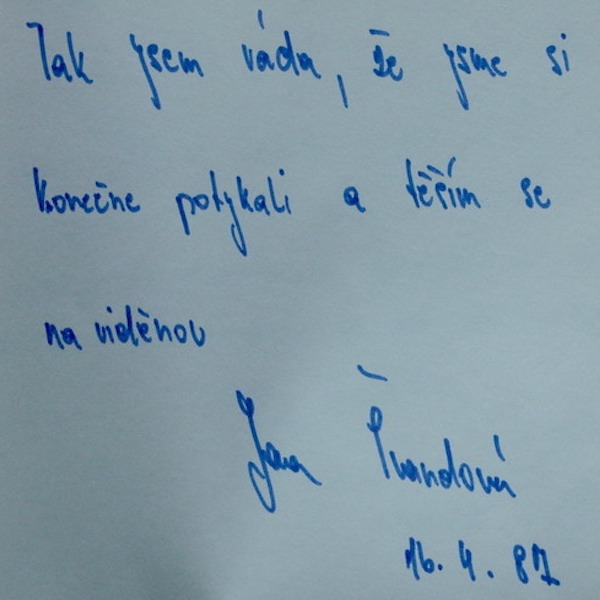 Tak jsem ráda, že jsme si
konečne potykali a těším se
na viděnou
Jana Švandová
16. 4. 87